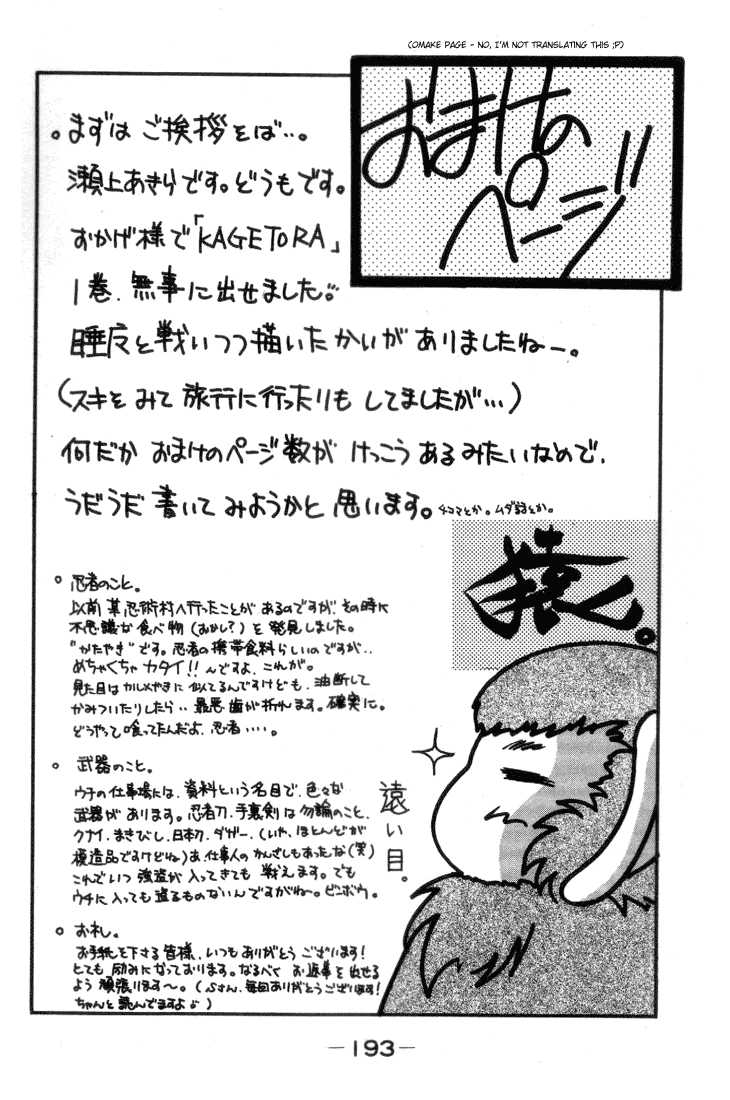 (OMAKE PAGE - NO, I'M NOT TRANSLATING THIS ;P)
おまけの
ページ!!
。まずは ご挨拶をば…。
瀬上あきらです。どうもです。
おかげ様で「KAGETORA」
1巻、無事に出せました。
睡魔と戦いつつ描いたかいがありましたねー。
(スキをみて旅行に行ったりもしてましたが…)
何だかおまけのページ数がけっこうあるみたいなので、
うだうだ書いてみようかと思います。4コマとか。ムダ話とか。
猿。
。忍者のこと。
以前某忍術村へ行ったことがあるのですが その時に
不思議な食べ物(おかし?)を発見しました。
"かたやき"です。忍者の携帯食料らしいのですが…
めちゃくちゃカタイ!!んですよ、これが。
見た目はカルメやきに似てるんですけども、油断して
かみついたりしたら…最悪歯が折れます。確実に。
どうやって喰ってたんだよ、忍者…。
。武器のこと。
ウチの仕事場には、資料という名目で、色々な
武器があります。忍者刀、手裏剣は勿論のこと、
クナイ、まきびし、日本刀、ダガー、(いや、ほとんどが
模造品ですけどね)あ、仕事人のかんざしもあったな(笑)
これでいつ強盗が入ってきても戦えます。でも
ウチに入っても盗るものないんですがね〜。ビンボウ。
遠い目。
。お礼。
お手紙を下さる皆様、いつもありがとうございます!
とても励みになっております。なるべくお返事を出せる
よう頑張ります〜。(Sさん、毎回ありがとうございます!
ちゃんと読んでますよ)
-193-